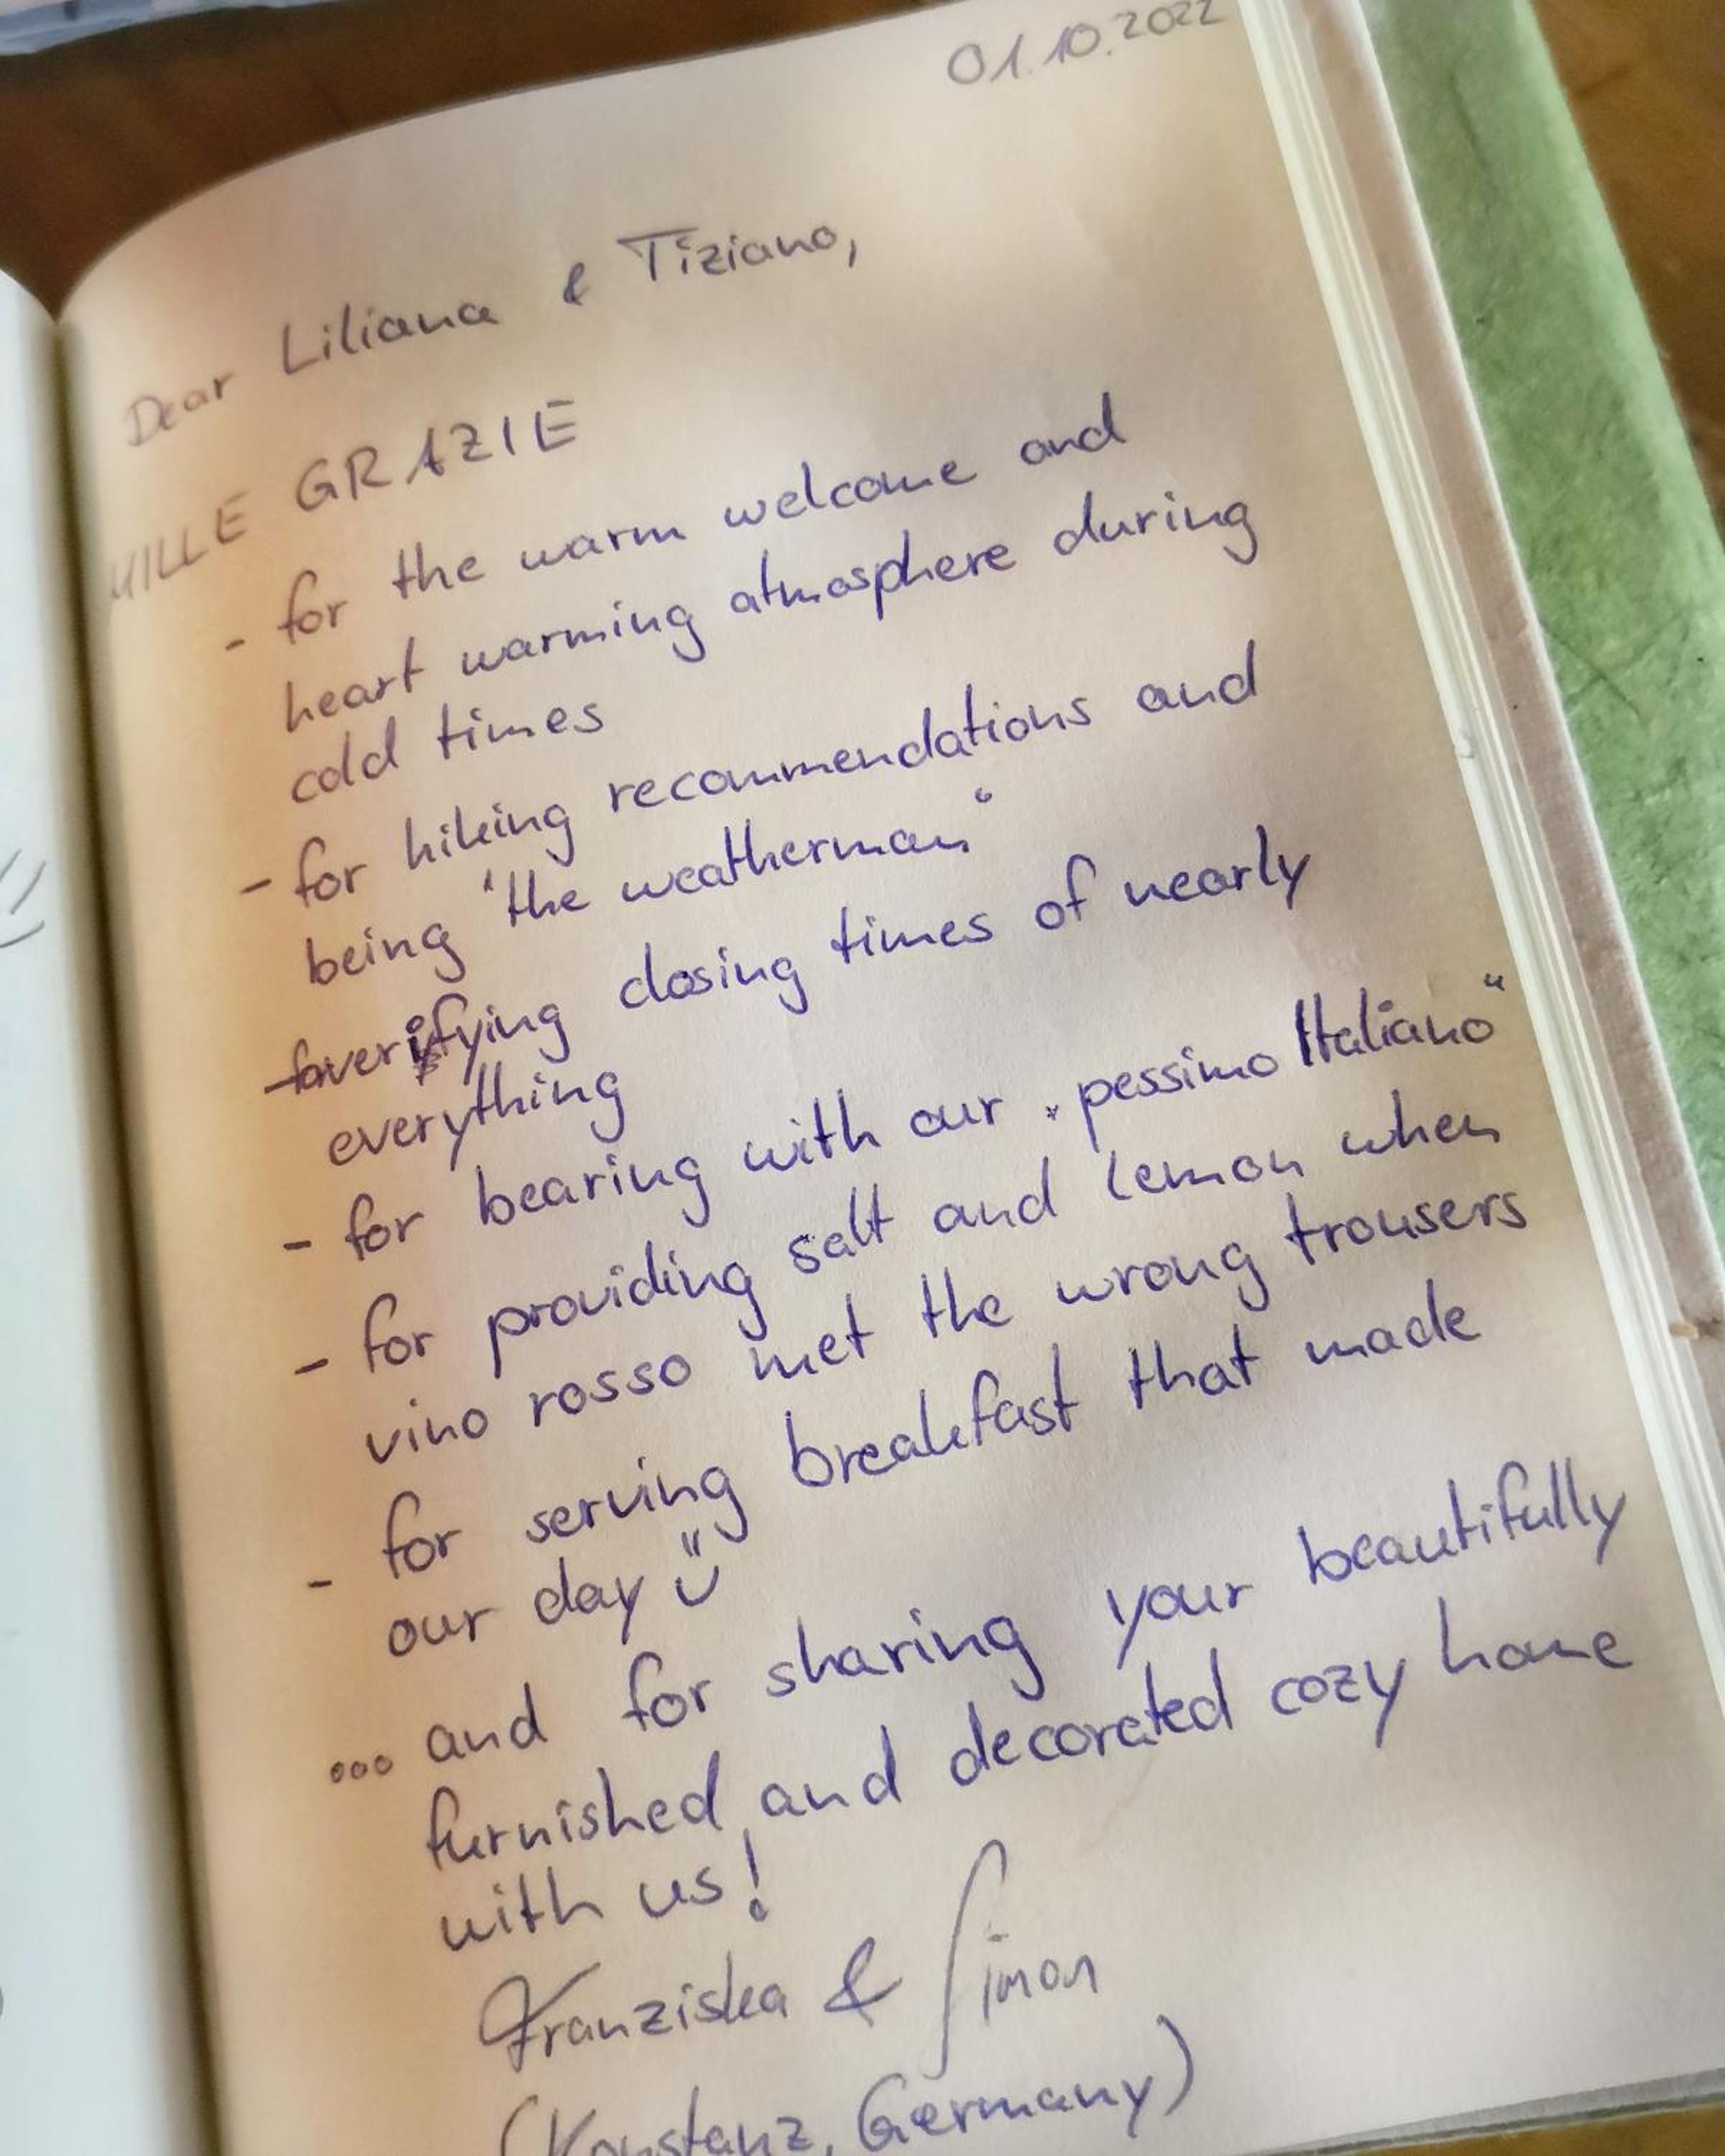 01.10.2022
Dear Liliana & Tiziano,
MILLE GRAZIE
- for the warm welcome and
heart warming atmosphere during
cold times
- for hiking recommendations and
being "the weatherman"
- for verifying closing times of nearly
everything
- for bearing with our „pessimo Italiano"
- for providing salt and lemon when
vino rosso met the wrong trousers
- for serving breakfast that made
our day ü
... and for sharing your beautifully
furnished and decorated cozy home
with us!
Franziska & Simon
(Konstanz, Germany)